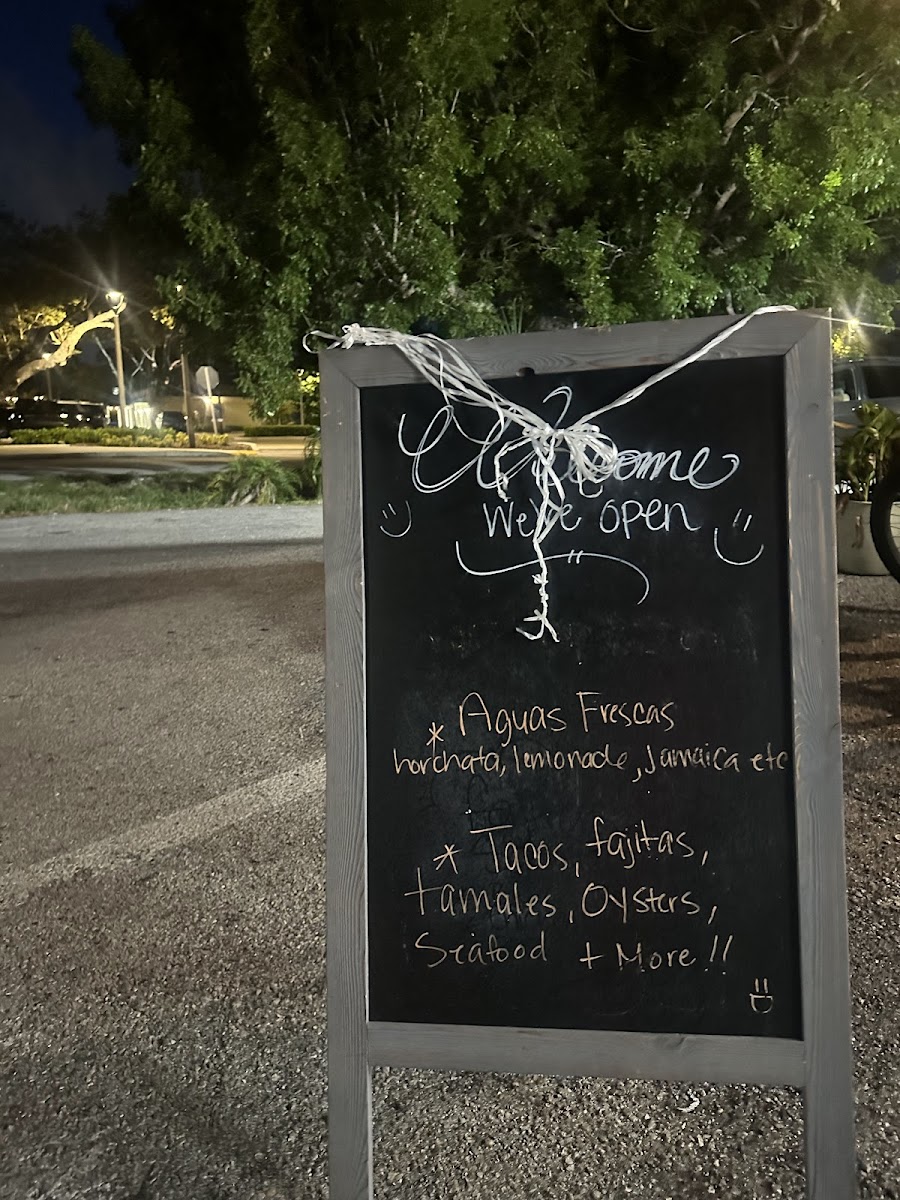 Welcome
We're open
* Aguas Frescas
horchata, lemonade, Jamaica etc
* Tacos, fajitas,
tamales, Oysters,
Seafood + More!!